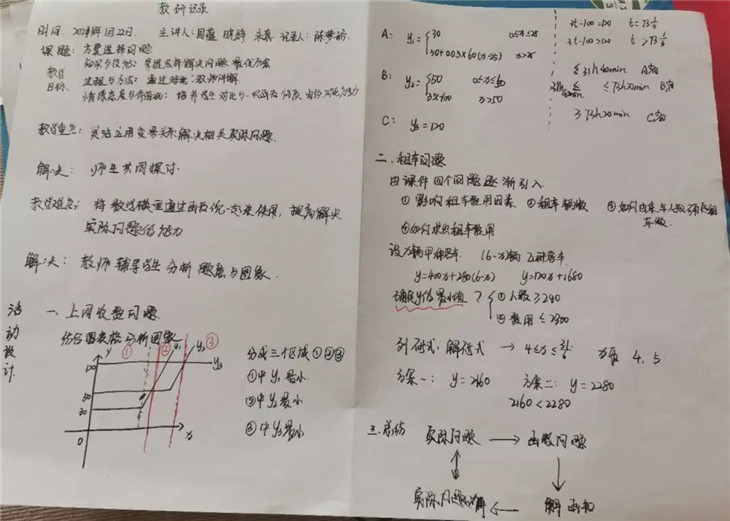 教研记录
时间: 2024年1月22日. 主讲人:
课题: 方案选择问题
教学目标: 知识与技能: 掌握选择解决问题最优方案
过程与方法: 通过对比, 教师讲解
情感态度与价值观: 培养学生对比
教学重点: 灵活运用变量关系解决相关实际问题.
解决: 师生共同探讨.
教学难点: 将数学模型通过函数统一起来使用, 提高解决
实际问题的能力
解决: 教师辅导学生分析题意与图象.
活动设计
一、上网收费问题
结合图表格分析图象
y
① ② ③
y₁ y₂
y₃
120
50
30
0
x
分成三个区域①②③
①中y₁最小
②中y₂最小
③中y₃最小
A: y₁= { 30 0≤x≤25
30+0.05×60(x-25) x>25
B: y₂= { 50 0≤x≤50
3x-100 x>50
C: y₃=120
3t-100=120 t=73⅓
3t-100>120 t>73⅓
≤31h40min A
≤73h20min B
≥73h20min C
二、租车问题
由课件四个问题逐渐引入
①影响租车费用因素 ②租车辆数 ③如何由乘车人数
④如何求出租车费用
设x辆甲种客车 (6-x)辆 乙种客车
y=400x+280(6-x) y=120x+1680
确定y的最小值? { ①人数≥240
②费用≤2300
列式, 解得 → 4≤x≤31/6 为 4, 5.
方案一: y=2160 方案二: y=2280
2160<2280
三、总结 实际问题 → 函数问题
实际问题的解 ← 解函数